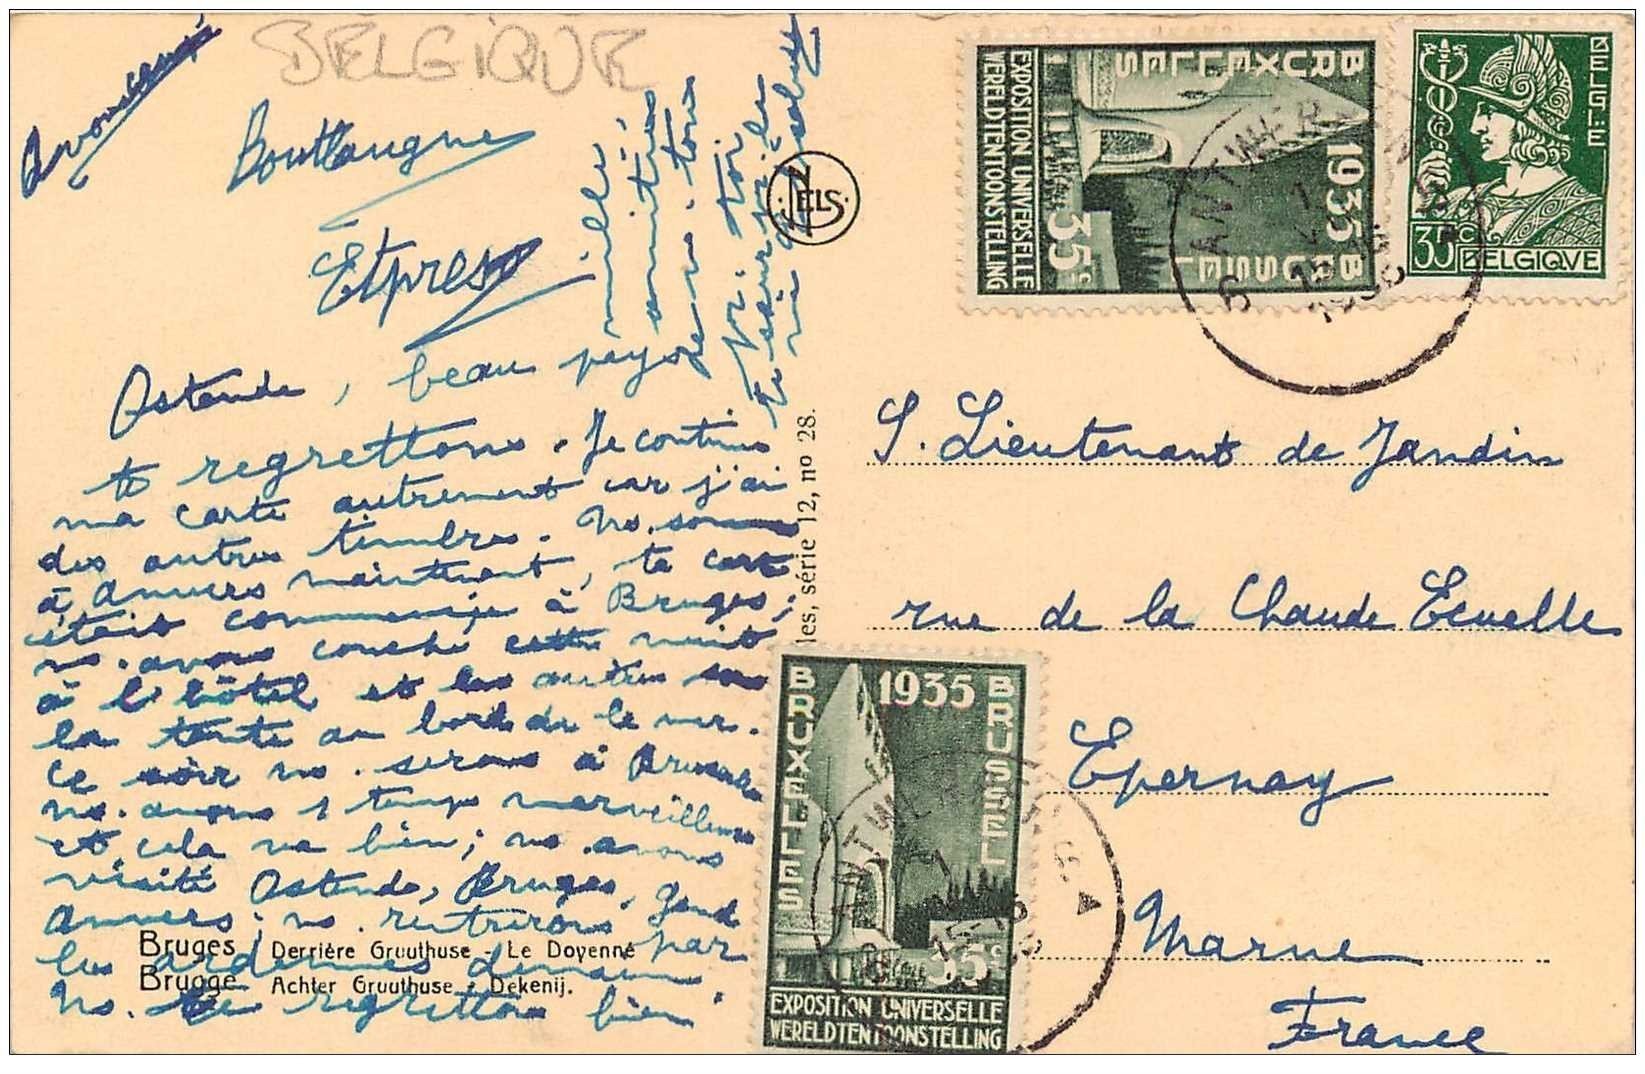 BELGIQUE
Ostende, beau pays
te regrettons. Je continue
ma carte autrement car j'ai
des autres timbres. Ns. sommes
à Anvers maintenant, ta carte
était commencée à Bruges;
ns. avons couché cette nuit
à l'hôtel et les autres sous
la tente au bord de la mer.
Ce soir ns. serons à Bruxelles
ns. avons 1 temps merveilleux
et cela va bien; ns. avons
visité Ostende, Bruges, Gand
Anvers; ns. rentrerons par
les ardennes demain.
Ns. te regrettons bien
mille
amitiés
de ns. tous
Bruges Derrière Gruuthuse - Le Doyenné
Brugge Achter Gruuthuse - Dekenij.
les, série 12, no 28.
ELS.
BRUXELLES
1935 BRUSSEL
EXPOSITION UNIVERSELLE
WERELDTENTOONSTELLING
35c
BELGIE
35c
BELGIQVE
ANTWERPEN
6
S. Lieutenant de Jandin
rue de la Chaude Ecuelle
Epernay
Marne
France
BRUXELLES
1935
BRUSSEL
35c
EXPOSITION UNIVERSELLE
WERELDTENTOONSTELLING
ANTWERPEN